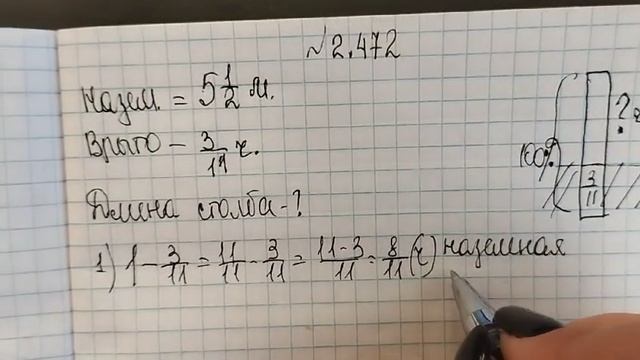 №2.472
Назем. = 5 1/2 м.
Врыто - 3/11 ч.
Длина столба - ?
1) 1 - 3/11 = 11/11 - 3/11 = (11-3)/11 = 8/11 (ч) наземная
?
100%
3/11